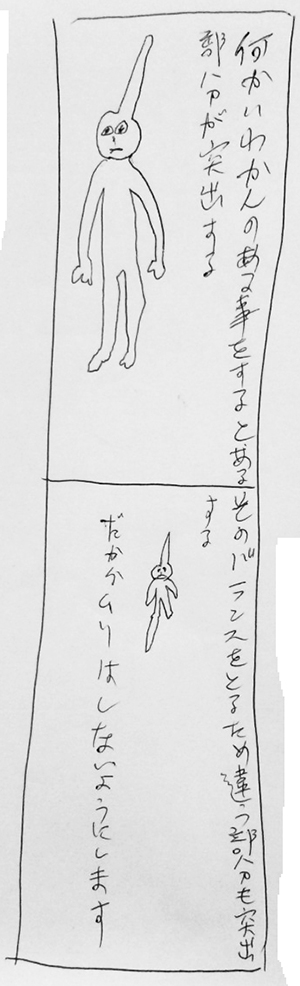 何かいわかんのある事をするとある
部分が突出する
そのバランスをとるため違う部分も突出
する
だからムリはしないようにします